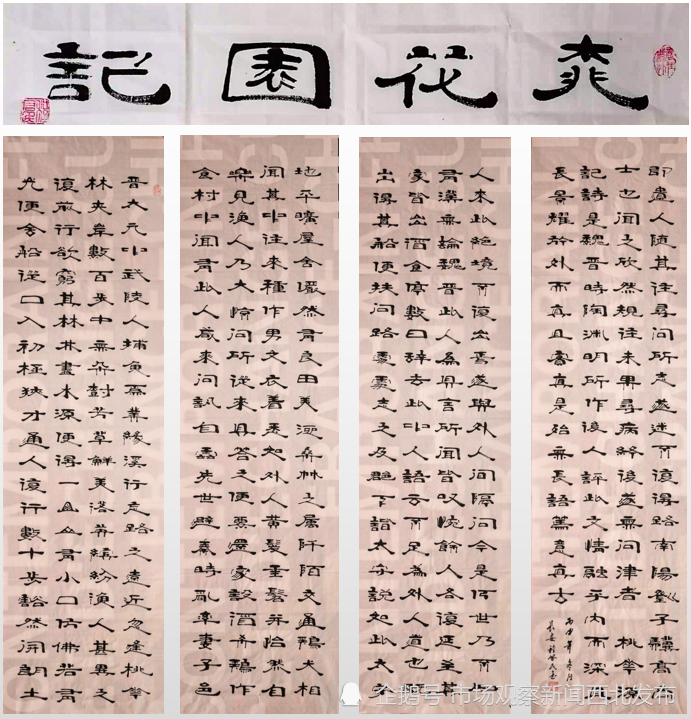 桃花園記
晋太元中武陵人捕魚為業緣溪行忘路之遠近忽逢桃華
林夾岸數百步中無雜樹芳草鮮美落英繽紛漁人甚異之
復前行欲窮其林林盡水源便得一山山有小口仿佛若有
光便舍船從口入初極狹才通人復行數十步豁然開朗土
地平曠屋舍儼然有良田美池桑竹之屬阡陌交通鷄犬相
聞其中往來種作男女衣着悉如外人黃髮垂髫并怡然自
樂見漁人乃大驚問所從來具答之便要還家設酒殺鷄作
食村中聞有此人咸來問訊自云先世避秦時亂率妻子邑
人來此絶境不復出焉遂與外人間隔問今是何世乃不知
有漢無論魏晋此人為具言所聞皆嘆惋餘人各復延至其
家皆出酒食停數日辭去此中人語云不足為外人道也既
出得其船便扶向路處處志之及郡下詣太守說如此太守
即遣人隨其往尋向所志遂迷不復得路南陽劉子驥高尚
士也聞之欣然規往未果尋病終後遂無問津者 桃華源
記詩是魏晋時陶淵明所作後人評此文情融乎內而深
長景耀於外而真且富真是殆無長語篤意真古
丙申年
企鹅号 市场观察新闻西北发布